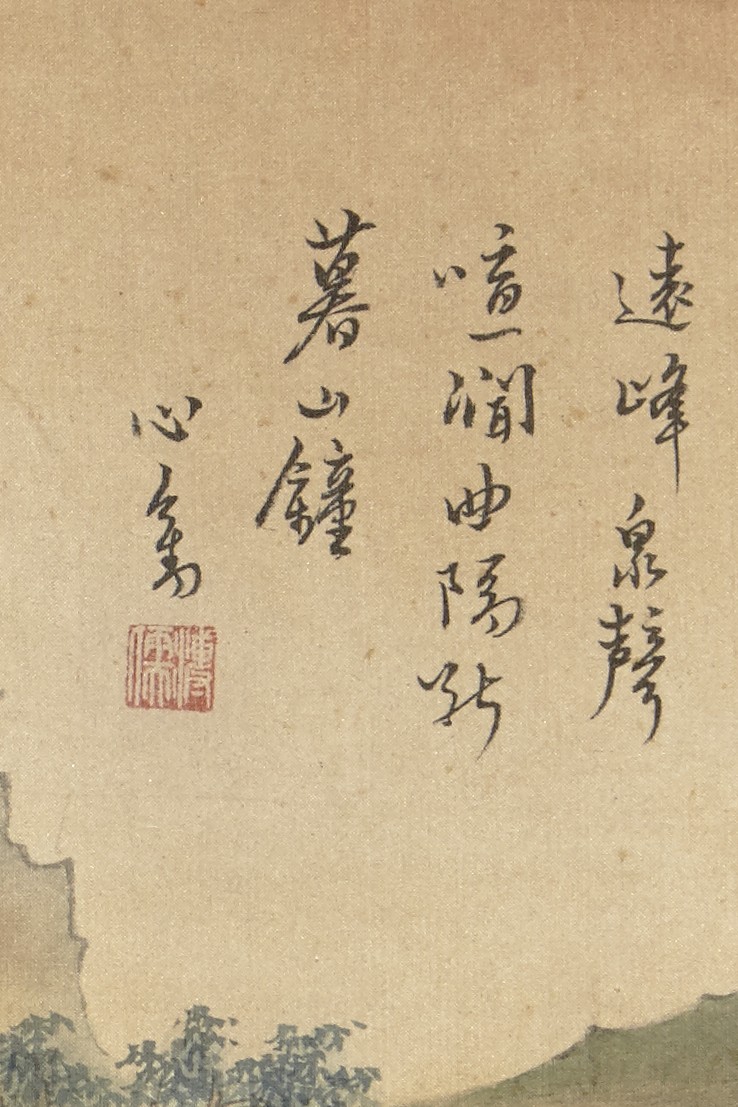 遠峰泉聲
喧澗曲隔斷
暮山鐘
心畬
溥儒